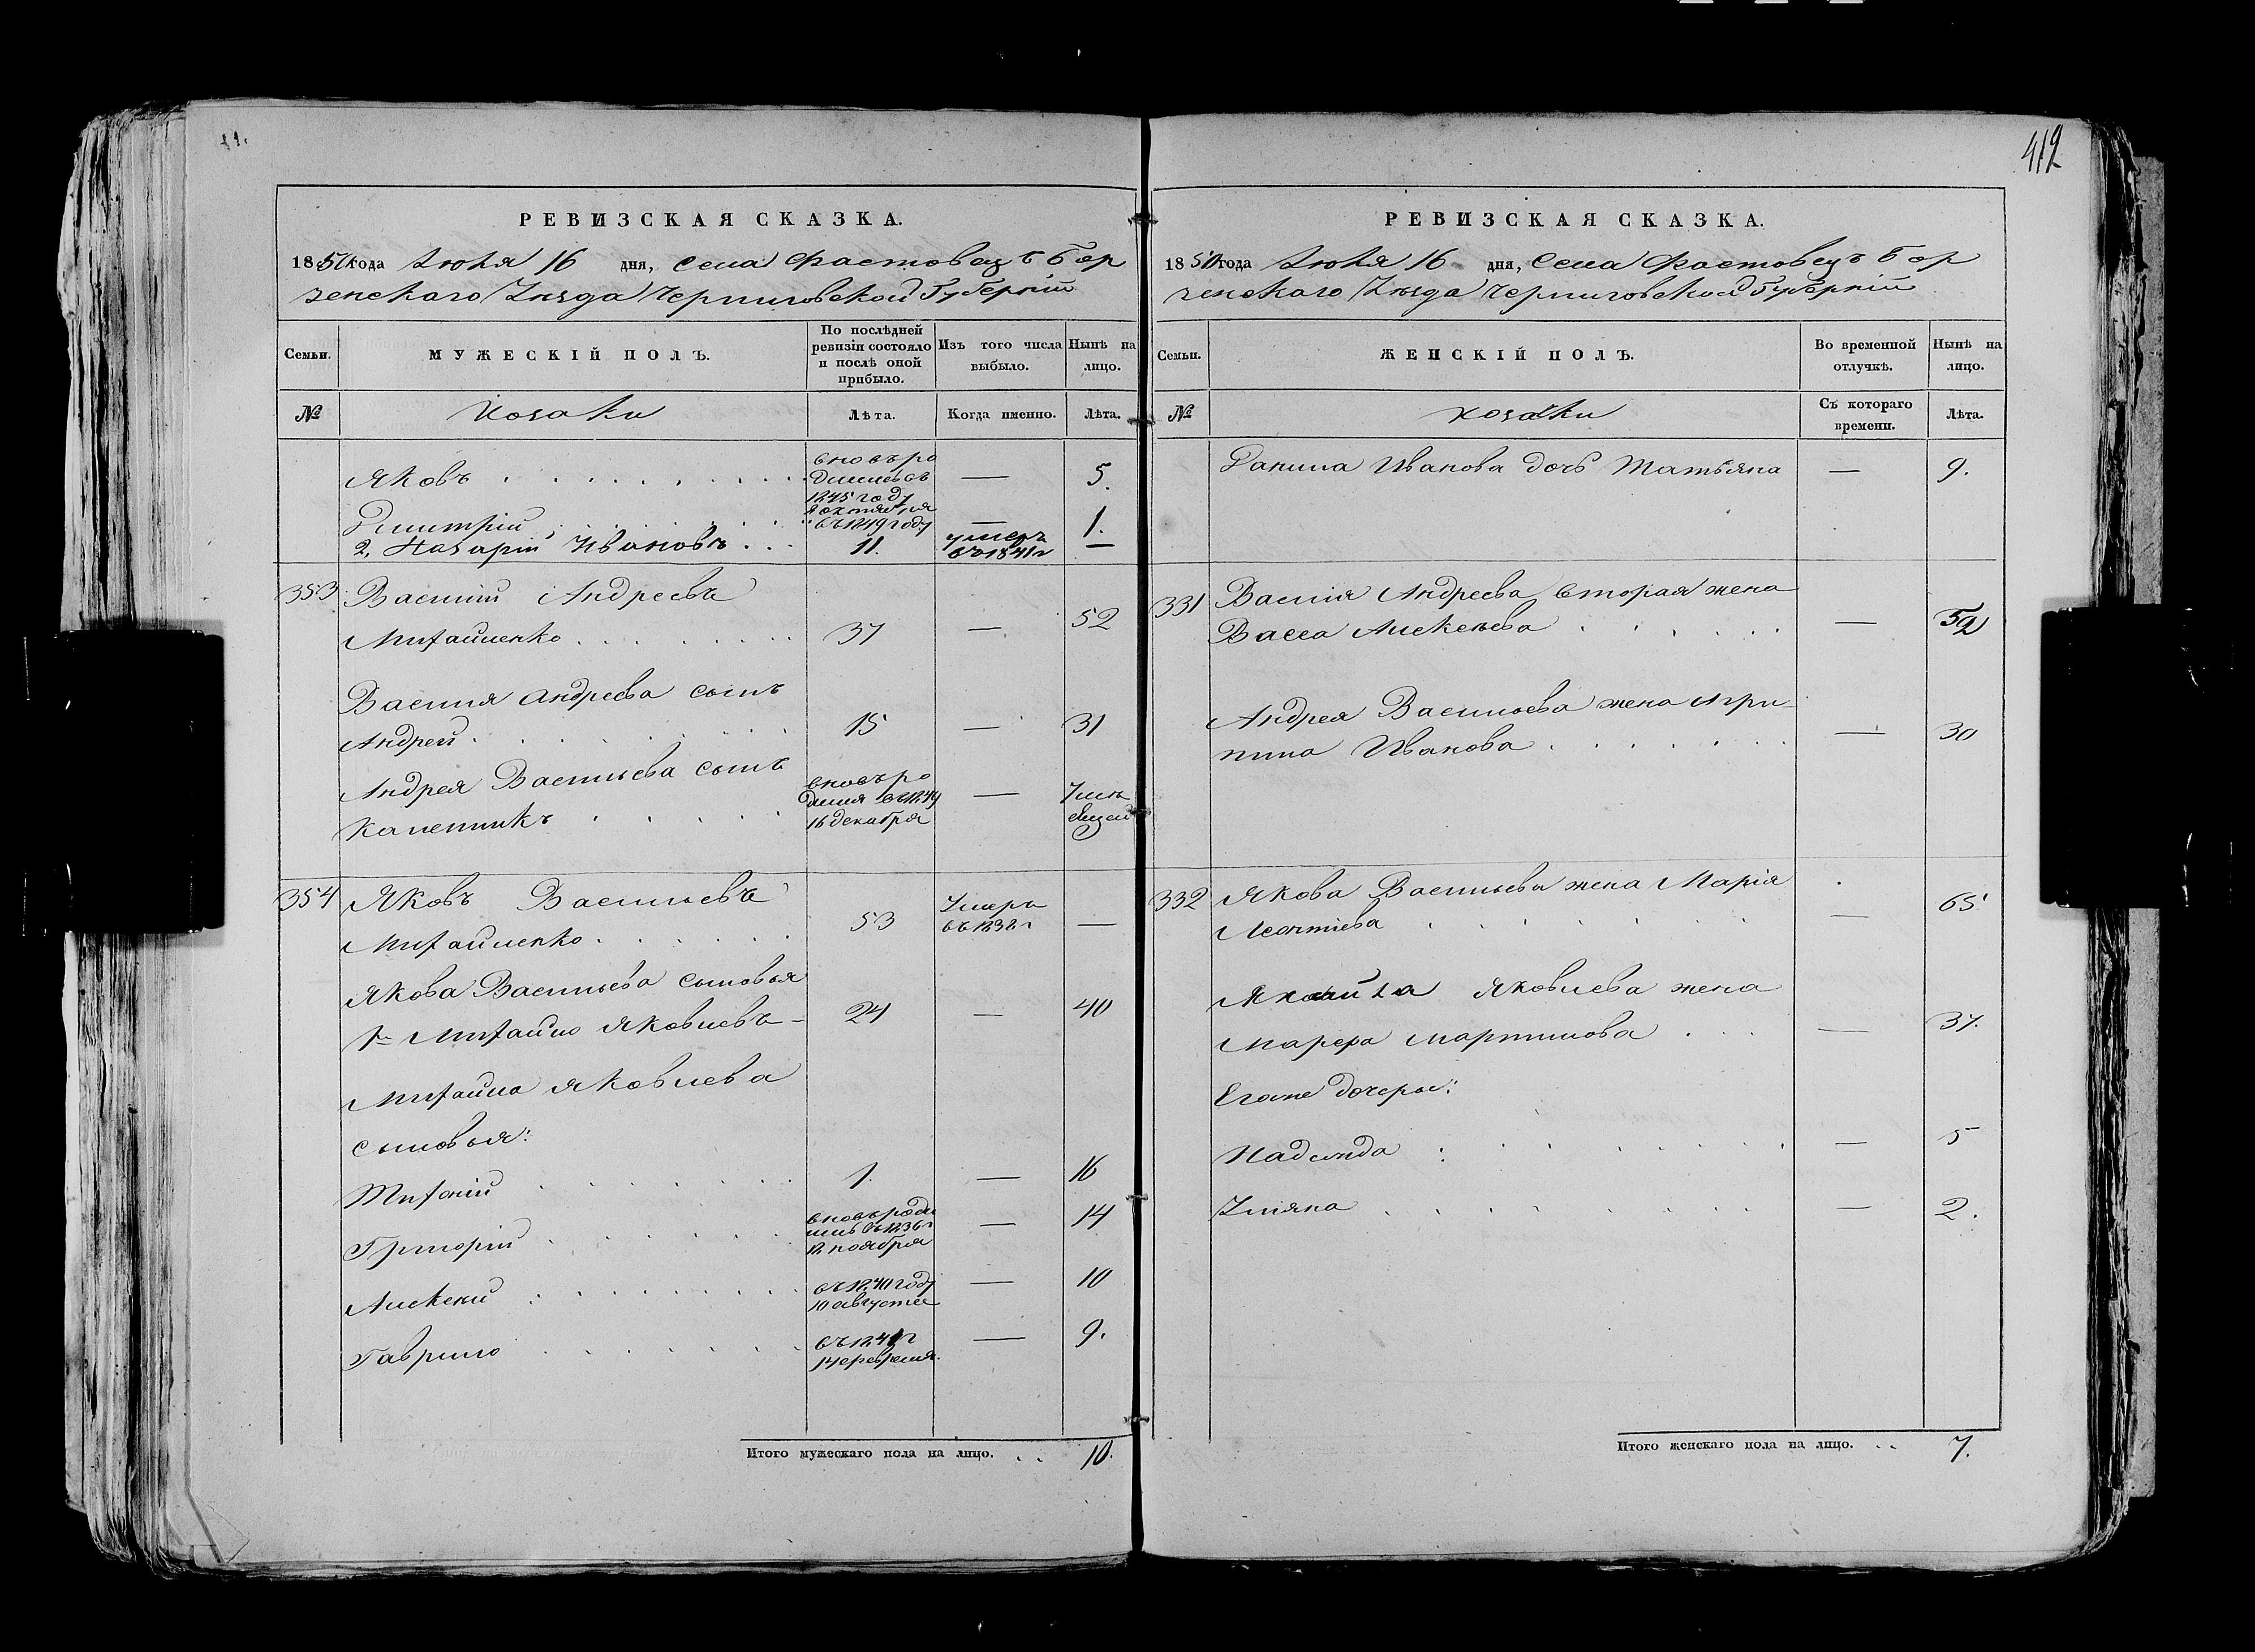 412
РЕВИЗСКАЯ СКАЗКА.
1850 года Июля 16 дня, Села Фастовецъ Бор
зенскаго Уезда Черниговской Губерніи
Семьи.
МУЖЕСКІЙ ПОЛЪ.
По послѣдней ревизіи состояло и послѣ оной прибыло.
Изъ того числа выбыло.
Нынѣ на лицо.
№
Козаки
Лѣта.
Когда именно.
Лѣта.
Яковъ вновь ро — 5.
1845 году
Дмитрій въ 1849 году — 1.
2. Назарій Ивановъ 11. умеръ —
353 Василій Андреевъ
Михайленко 37 — 52
Василія Андреева сынъ
Андрей 15 — 31
Андрея Васильева сынъ
Калениикъ вновь ро
16 декабря
354 Яковъ Васильевъ
Михайленко 53 Умеръ —
Якова Васильева сыновья
1й Михайло Яковлевъ 24 — 40
Михайла Яковлева
сыновья:
Тихонъ 1. — 16
Григорій 12 ноября — 14
Алексей 10 августа — 10
Гаврило — 9.
Итого мужескаго пола на лицо. . . 10.
РЕВИЗСКАЯ СКАЗКА.
1850 года Июля 16 дня, Села Фастовецъ Бор
зенскаго Уезда Черниговской Губерніи
Семьи.
ЖЕНСКІЙ ПОЛЪ.
Во временной отлучкѣ.
Нынѣ на лицо.
№
козачки
Съ котораго времени.
Лѣта.
Данила Иванова дочь Татьяна — 9.
331 Василія Андреева вторая жена
Васса Алексеева — 52
Андрея Васильева жена Агри-
пина Иванова — 30
332 Якова Васильева жена Марія
Леонтіева — 65
Яковлева жена
Марфа Мартинова — 37.
Егоже дочеры:
Надежда — 5
Уляна — 2.
Итого женскаго пола на лицо. . . 7.